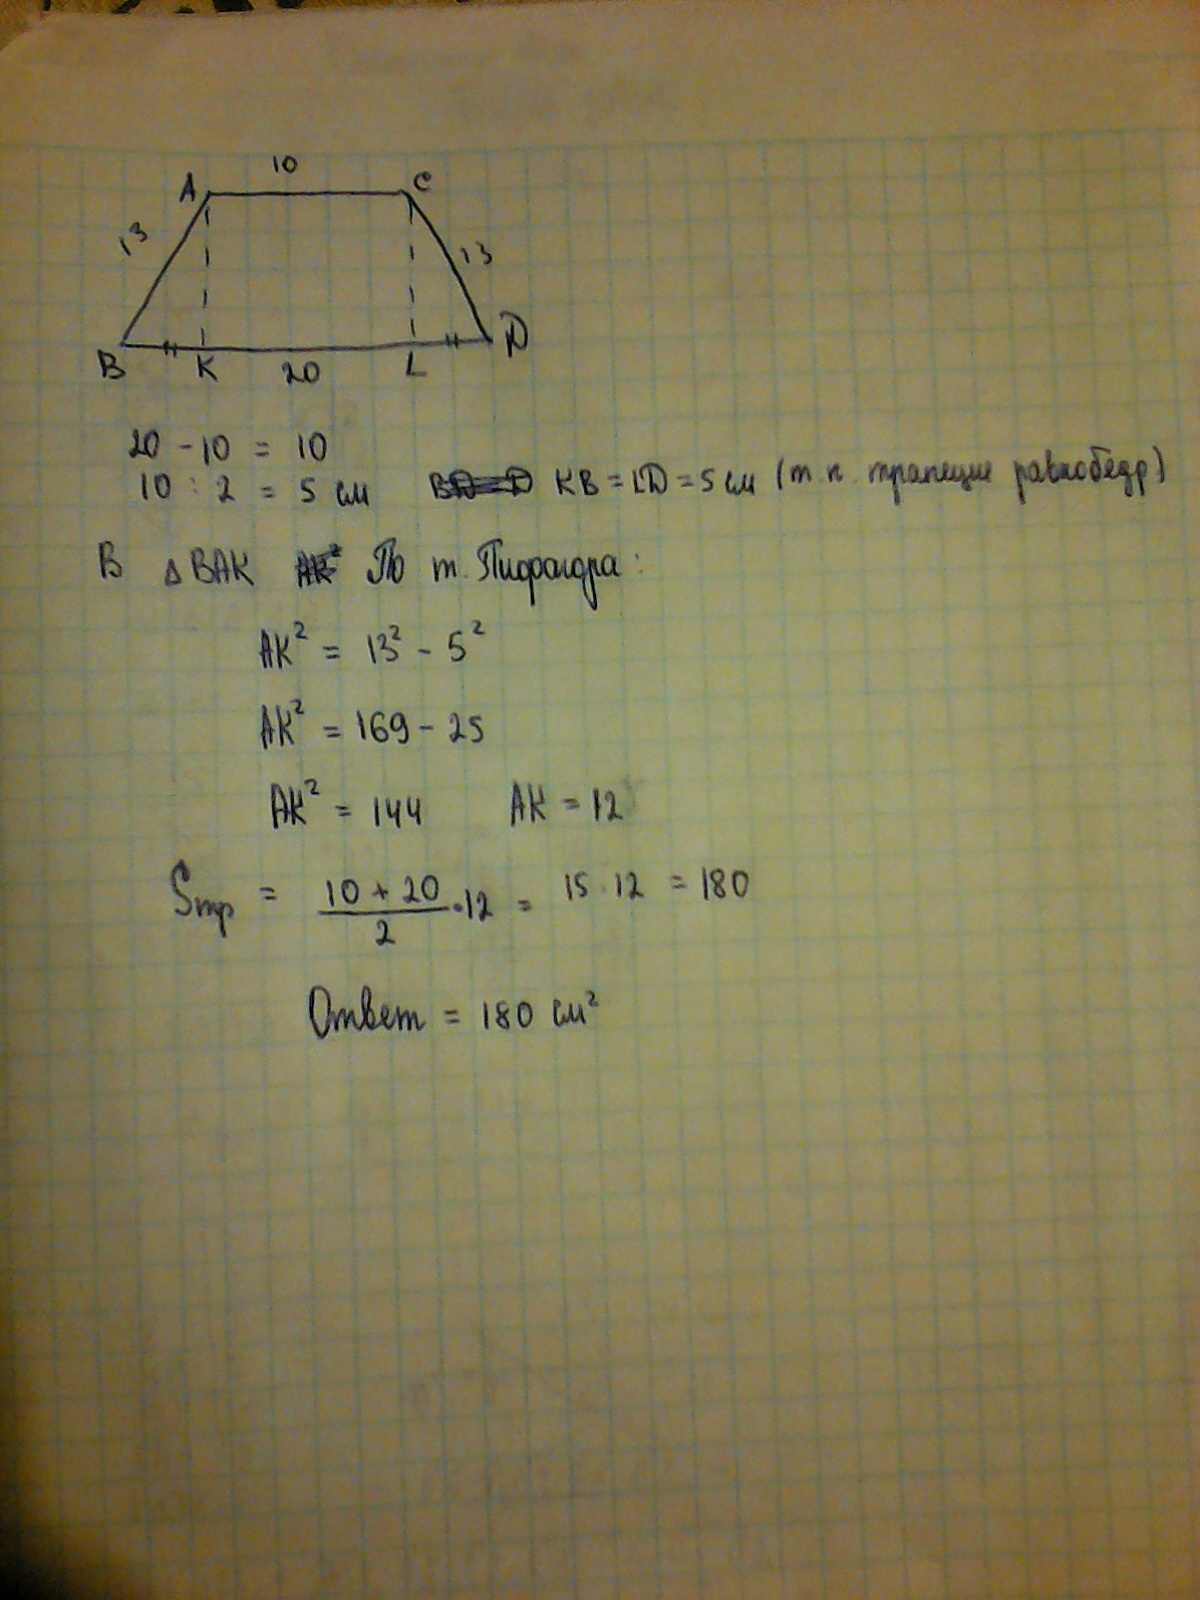 10
A C
13 13
B K 20 L D
20 - 10 = 10
10 : 2 = 5 см KB = LD = 5 см (т.к. трапеция равнобедр)
В △ BAK По т. Пифагора:
AK² = 13² - 5²
AK² = 169 - 25
AK² = 144 AK = 12
Sтр = (10 + 20)/2 · 12 = 15 · 12 = 180
Ответ = 180 см²